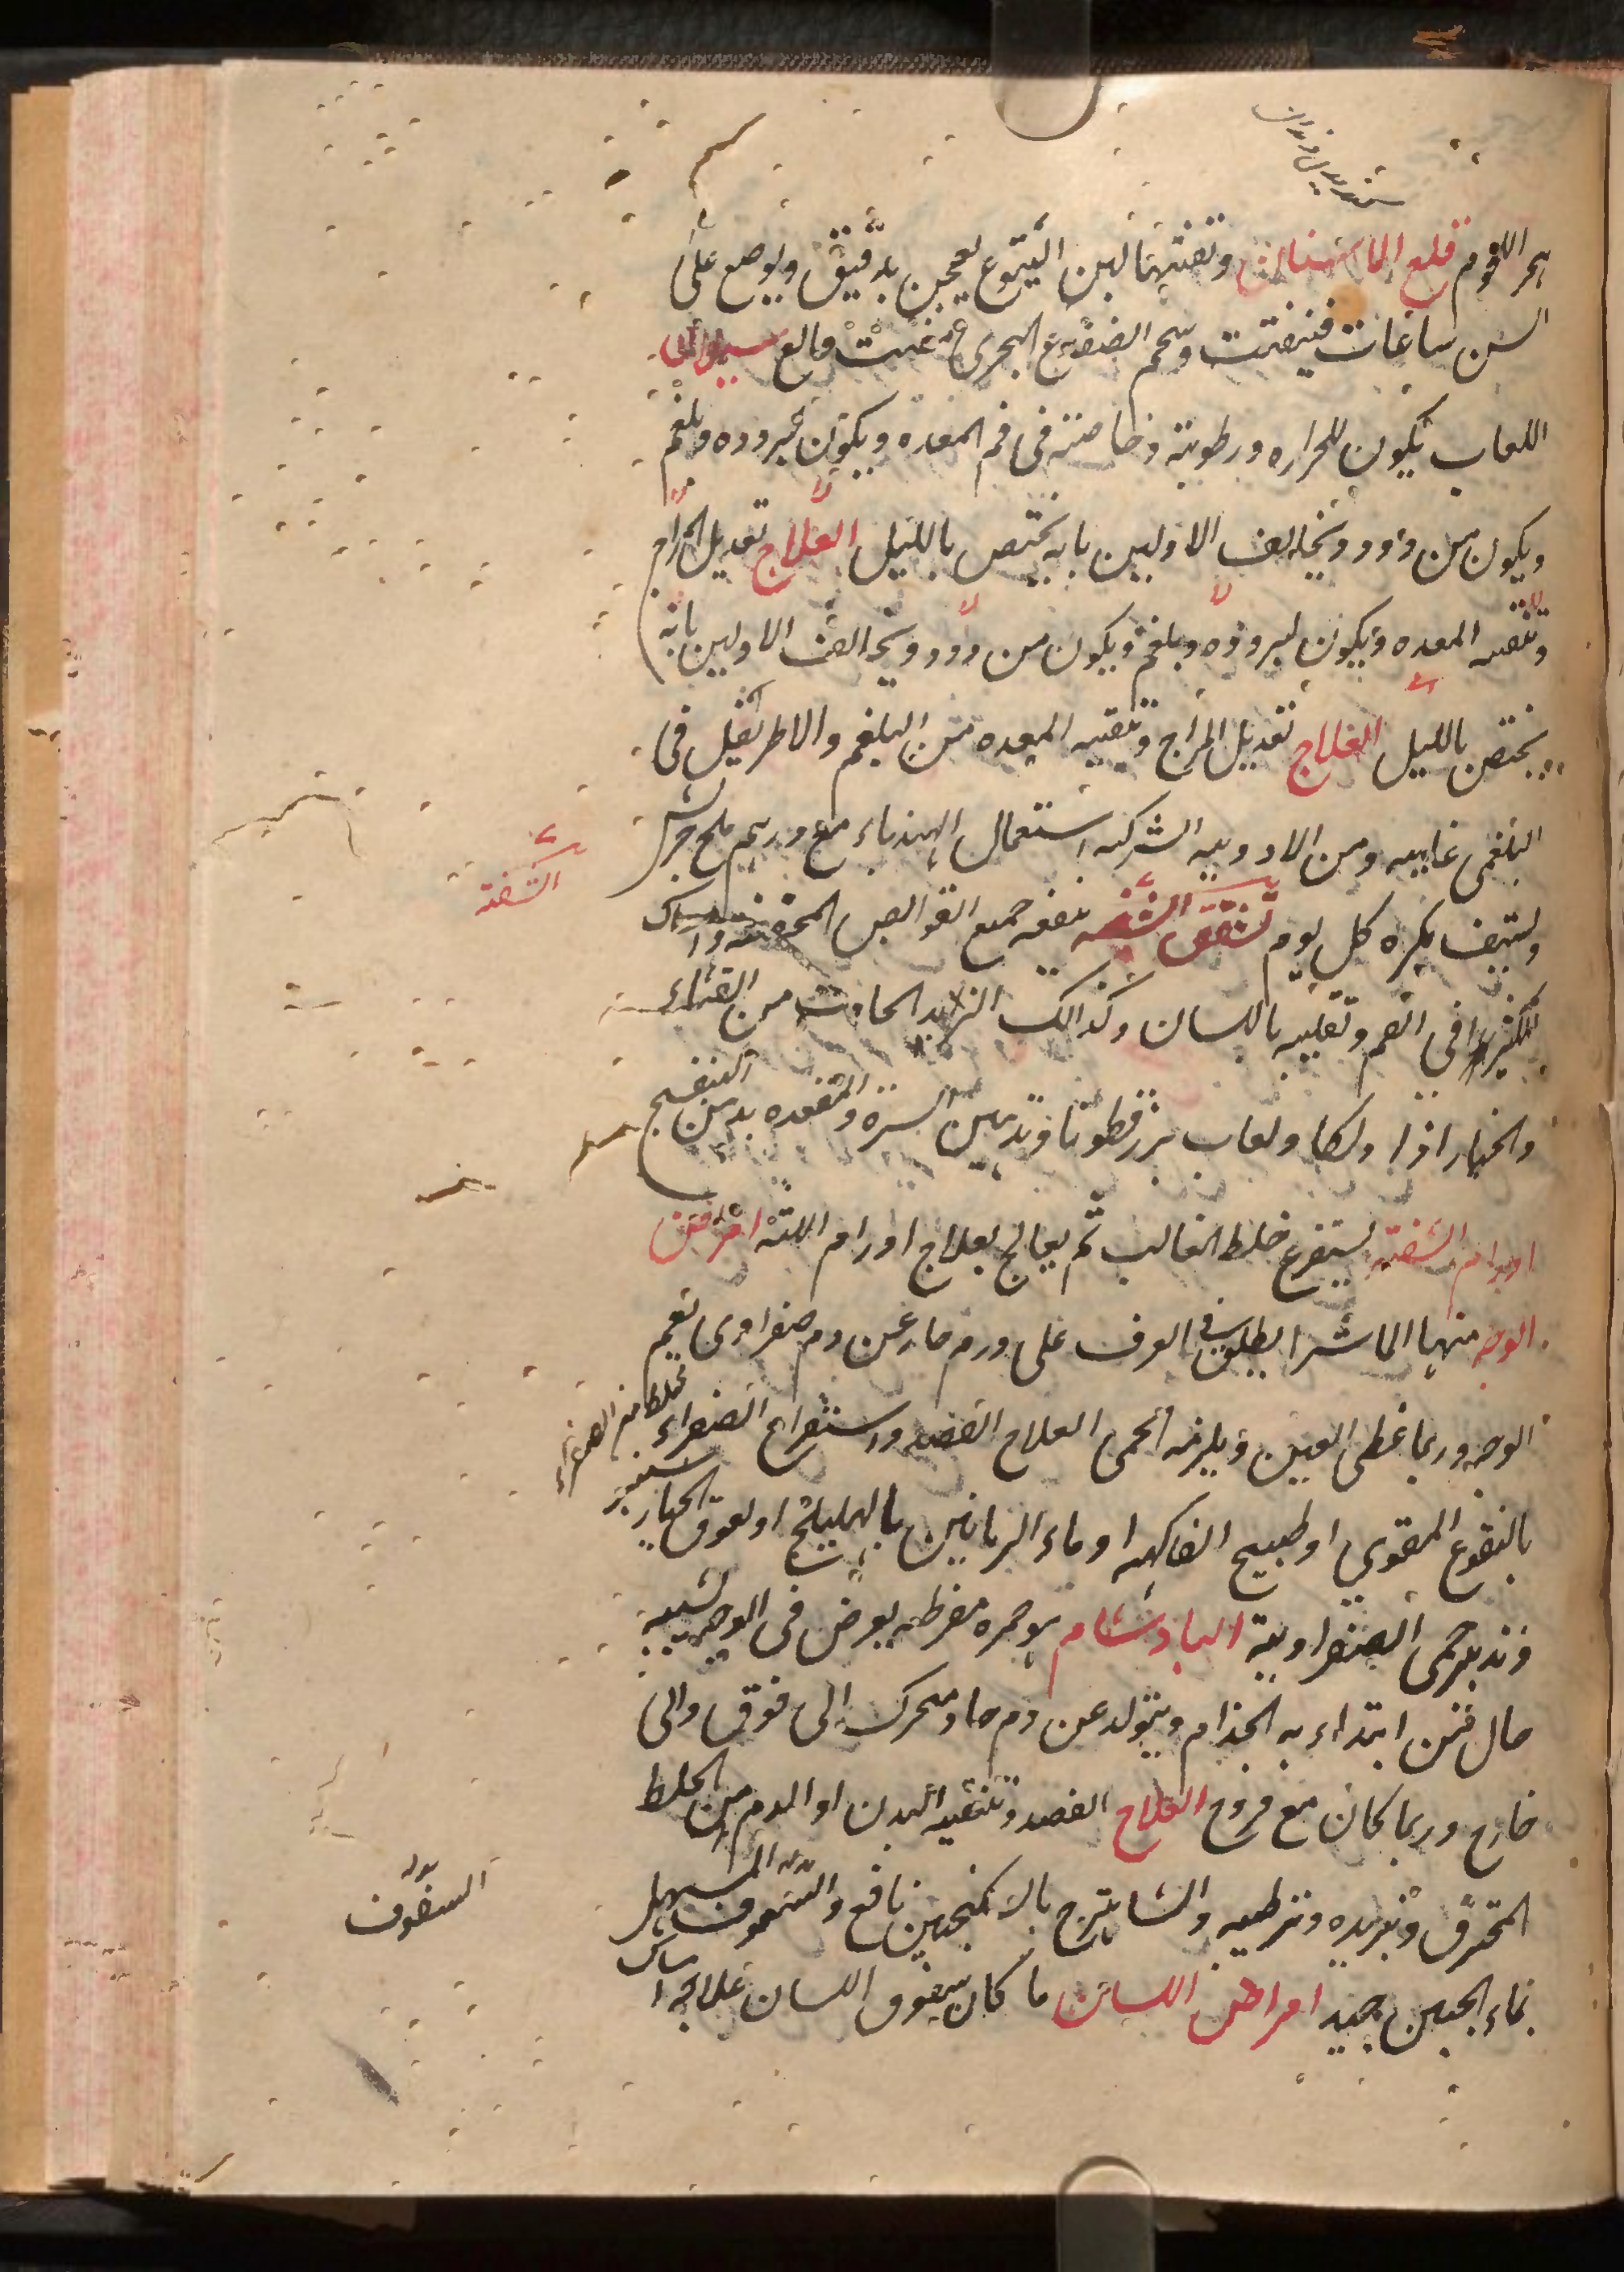 بحر اللحوم قلع الاسنان وتفتتها لبن اليتوع يعجن بدقيق ويوضع على
السن ساعات فيتفتت وشحم الضفدع البحري مفتت وقالع سيلان
اللعاب يكون للحراره ورطوبته وخاصته فى فم المعده ويكون لبروده وبلغم
ويكون من دود ويخالف الاولين بانه يختص بالليل العلاج تعديل المزاج
وتنقيه المعده ويكون لبروده وبلغم ويكون من دود ويخالف الاولين بانه
يختص بالليل العلاج تعديل المزاج وتنقيه المعده من البلغم والاطريفل فى
البلغمى غاييه ومن الادوييه المشتركه استعمال الهندباء مع درهم ملح جريش
وليستف بكره كل يوم تشقق الشفه ينفعه جميع القوابض المجففه وامساك
الكثيرا فى الفم وتقليبه باللسان وكذالك الزبد الحادث من القثاء
والخيار اذا دلكا ولعاب بزرقطونا وتدهين السرة والمقعده بدهن البنفسج
اورام الشفتيه يستفرغ خلط الغالب ثم يعالج بعلاج اورام اللثه امراض
الوجه منها الماشرا يطلق فى العرف على ورم حار عن دم صفراوى يعم
الوجه وربما غطى العين ويلزمه الحمى العلاج الفصد واستفراغ الصفراء
بالنقوع المقوي او طبيخ الفاكهه او ماء الرمانين بالهليلج او لعوق الخيار شنبر
وتدبير حمى الصفراوية البادشنام هو حمره مفرطه يعرض فى الوجه يشبه
حال من ابتداء به الجذام ويتولد عن دم حاد متحرك الى فوق والى
خارج وربما كان مع قروح العلاج الفصد وتنقيه البدن او الدم من الخلط
المحترق وتبريده وترطيبه والشاهترج بالسكنجبين نافع والسفوف المسهل
بماء الجبن جيد امراض اللسان ما كان يعوق اللسان علاجه امساك
الشفة
السفوف